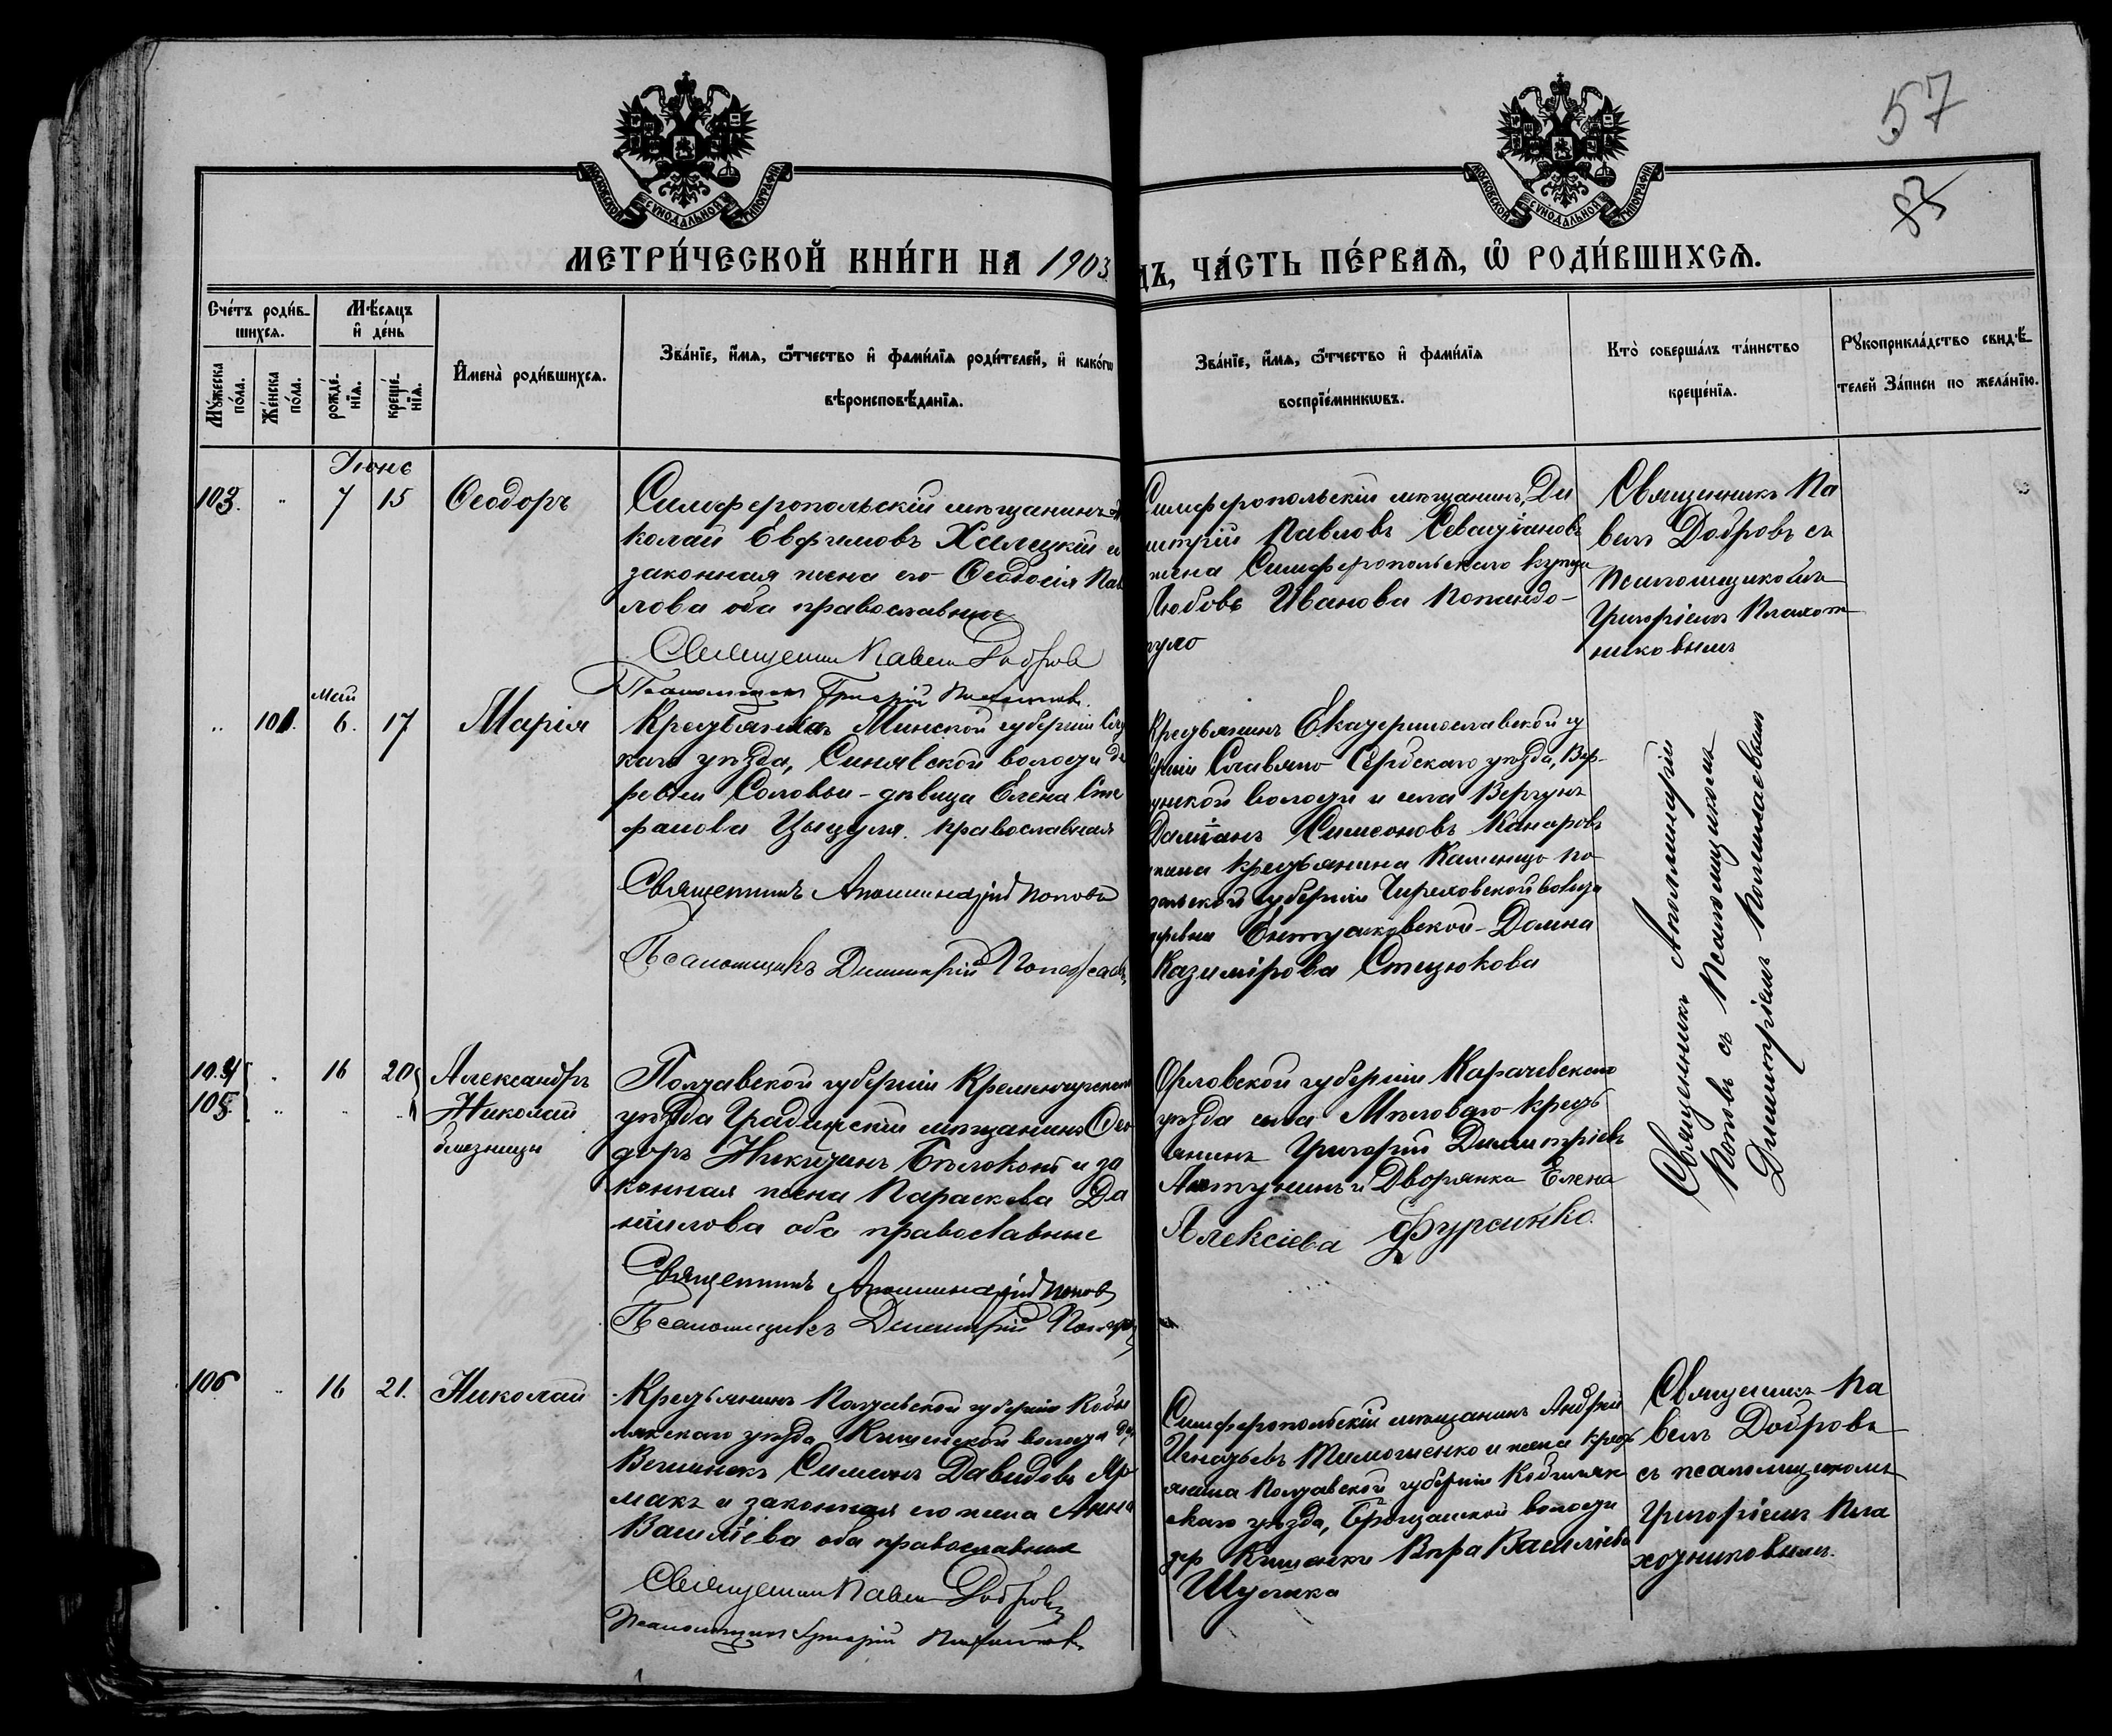 57
83
МОСКОВСКОЙ СѴНОДАЛЬНОЙ ТИПОГРАФІИ
МОСКОВСКОЙ СѴНОДАЛЬНОЙ ТИПОГРАФІИ
МЕТРИ́ЧЕСКОЙ КНИ́ГИ НА 1903
ДЪ, ЧА́СТЬ ПЕ́РВАѦ, Ѽ РОДИ́ВШИХСѦ.
Сче́тъ роди́в-
шихсѧ.
Мꙋ́жеска по́ла.
Же́нска по́ла.
Мѣ́сѧцъ
и҆ де́нь
рожде́-нїѧ.
креще́-нїѧ.
И҆мена̀ роди́вшихсѧ.
Зва́нїе, и҆́мѧ, ѻ҆́тчество и҆ фами́лїѧ роди́телей, и҆ како́гѡ
вѣроисповѣ́данїѧ.
Зва́нїе, и҆́мѧ, ѻ҆́тчество и҆ фами́лїѧ
воспрїе́мникѡвъ.
Кто̀ соверша́лъ та́инство
креще́нїѧ.
Рꙋкоприкла́дство свидѣ́-
телей За́писи по жела́нїю.
Іюнь
103. " 7 15 Ѳеодоръ
Симферопольскій мѣщанинъ Ни
колай Евфимовъ Халецкій и
законная жена его Ѳеодосія Пав
лова оба православные
Священник Павел Добров
Псаломщик Григорій
Симферопольскій мѣщанинъ Ди
митрій Павловъ Севастіановъ
жена Симферопольскаго купца
Любовь Иванова Попандо-
пуло
Священникъ Па
велъ Добровъ съ
Псаломщикомъ
Григоріемъ Плахот
никовымъ
Май
" 101. 6. 17 Марія
Крестьянка Минской губерніи Слуц
каго уѣзда, Синявской волости де
ревни Соловьи - дѣвица Елена Сте
фанова Цыцуля. православная
Священникъ Аполлинарій Поповъ
Псаломщикъ Димитрій
Крестьянинъ Екатеринославской гу
берніи Славяно-Сербскаго уѣзда, Вер-
гунской волости и села Вергунъ
Даміанъ Симеоновъ Канаровъ
жена крестьянина Каменецъ По
дольской губерніи
деревни Домна
Казимірова Стецюкова
Священникъ Аполлинарій
Поповъ съ Псаломщикомъ
Димитріемъ
104 " 16 20 Александръ
105. " " " Николай
близнецы
Полтавской губерніи Кременчугскаго
уѣзда Градижскій мѣщанинъ Ѳео
доръ Никитинъ Бѣлоконь и за
конная жена Параскева Да
ніилова оба православные
Священникъ Аполлинарій Попов
Псаломщикъ Димитрій
Орловской губерніи Карачевскаго
уѣзда села Мѣловаго крест
янинъ Григорій Димитріевъ
Алтунинъ и Дворянка Елена
Алексіева Фурсенко.
106 " 16 21. Николай
Крестьянинъ Полтавской губерніи Кобы
лякскаго уѣзда, Кишенской волости дер
Симеонъ Давидовъ Яр
макъ и законная его жена Анна
Василіева оба православные
Священник Павел Добров
Псаломщик Григорій
Симферопольскій мѣщанинъ Андрей
Игнатьевъ Тимошенко и жена крест
янина Полтавской губерніи Кобыляк
скаго уѣзда, волости
дер Кишеньки Вѣра Василіева
Шулика
Священникъ Па
велъ Добровъ
съ псаломщикомъ
Григоріемъ Пла
хотниковымъ.